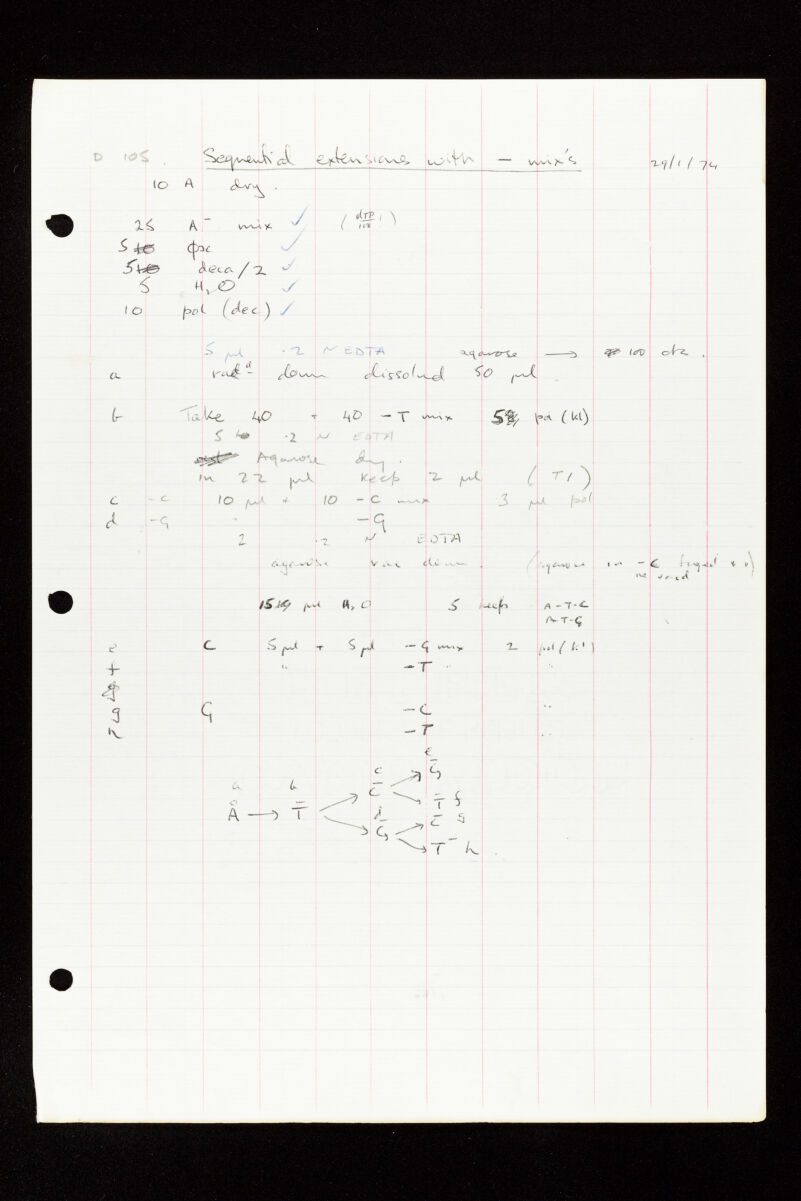 D 105. Sequential extensions with — mix's 29/1/74
10 A dry.
25 A⁻ mix ✓ (dTP/100 1)
5 10 φx ✓
5 10 deca/2 ✓
5 H₂O ✓
10 pol (dec) ✓
5 µl ·2 N EDTA agarose → 100 ctz.
a vac^d down dissolved 50 µl
b Take 40 + 40 -T mix 5 pol (kl)
5 10 ·2 N EDTA
Agarose dry.
in 22 µl keep 2 µl (T1)
c -C 10 µl + 10 -C mix 3 µl pol
d -G " -G
2 ·2 N EDTA
agarose vac down. (agarose in -C
15 µl H₂O 5 keep A-T-C
A-T-G
e C 5 µl + 5 µl -G mix 2 pol (kl)
f " -T " "
g
g G -C "
h -T "
e
c G̅
a b C̅ T̅ f
Å → T̅ d C̅ g
G̅ T⁻ h